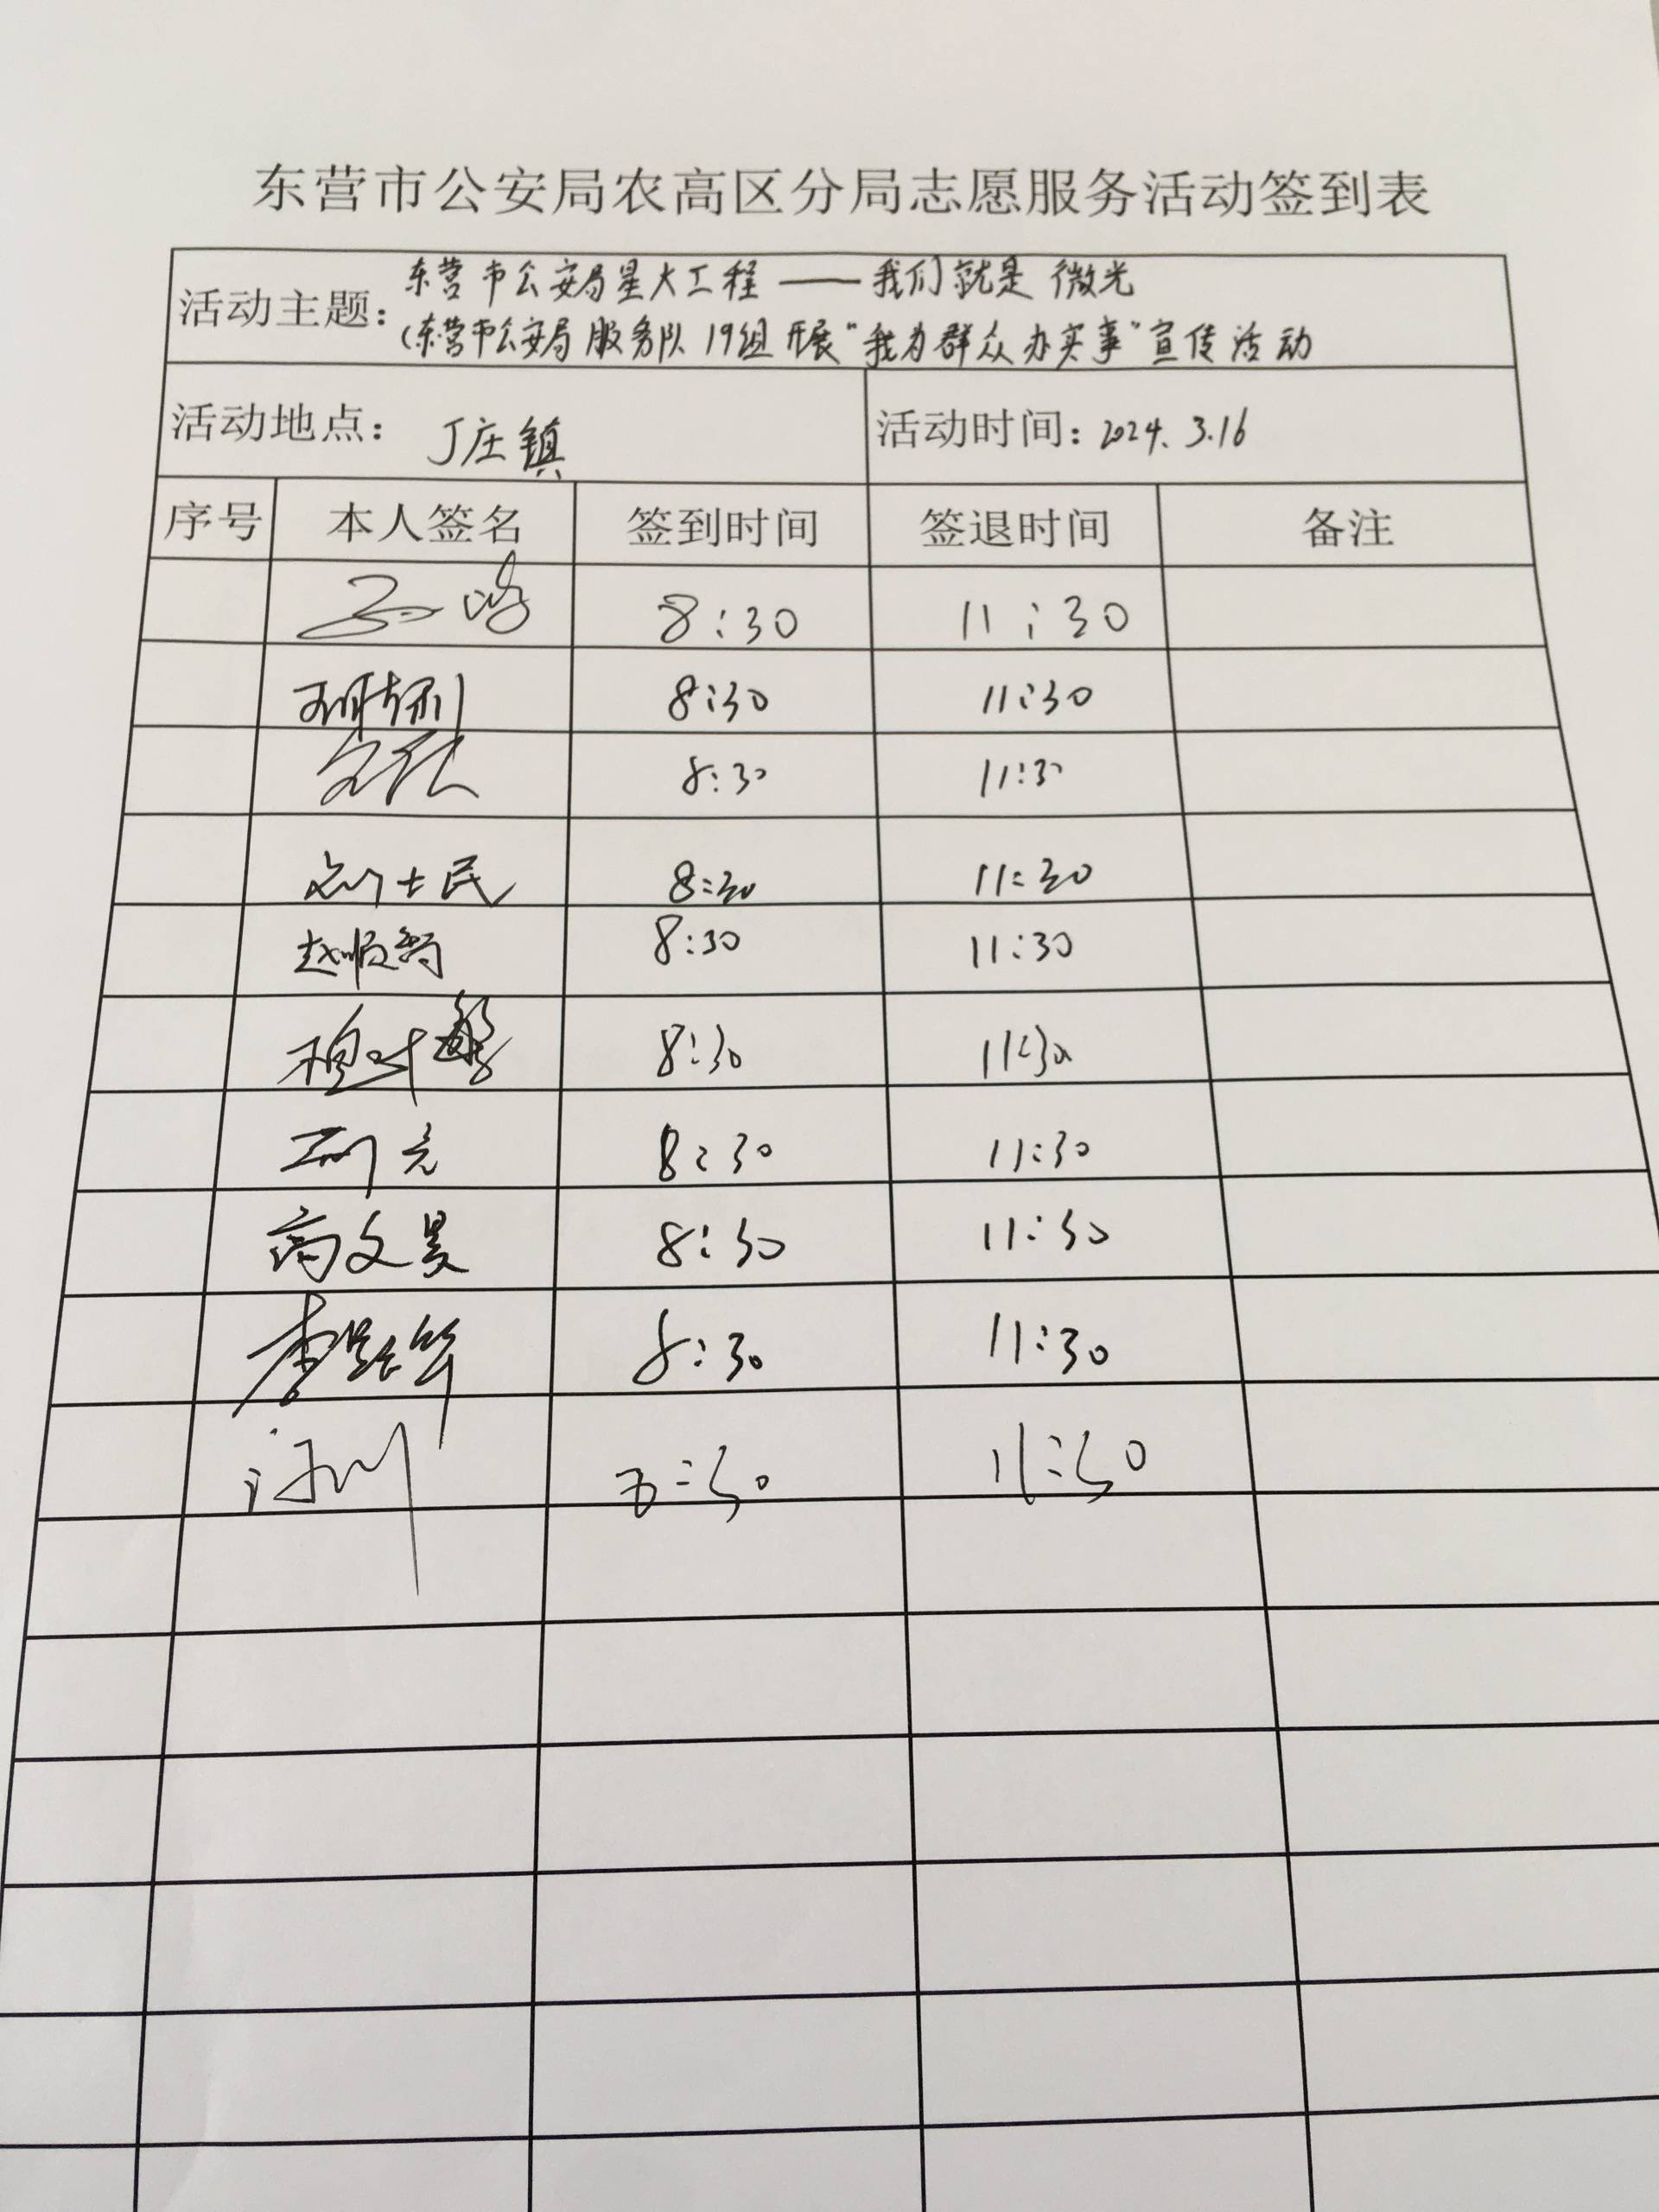 东营市公安局农高区分局志愿服务活动签到表
活动主题: 东营市公安局星火工程——我们就是微光
(东营市公安局服务队19组开展"我为群众办实事"宣传活动
活动地点: 丁庄镇 活动时间: 2024.3.16
序号 本人签名 签到时间 签退时间 备注
8:30 11:30
8:30 11:30
8:30 11:30
刘士民 8:30 11:30
赵顺 8:30 11:30
8:30 11:30
8:30 11:30
高文昊 8:30 11:30
8:30 11:30
11:30